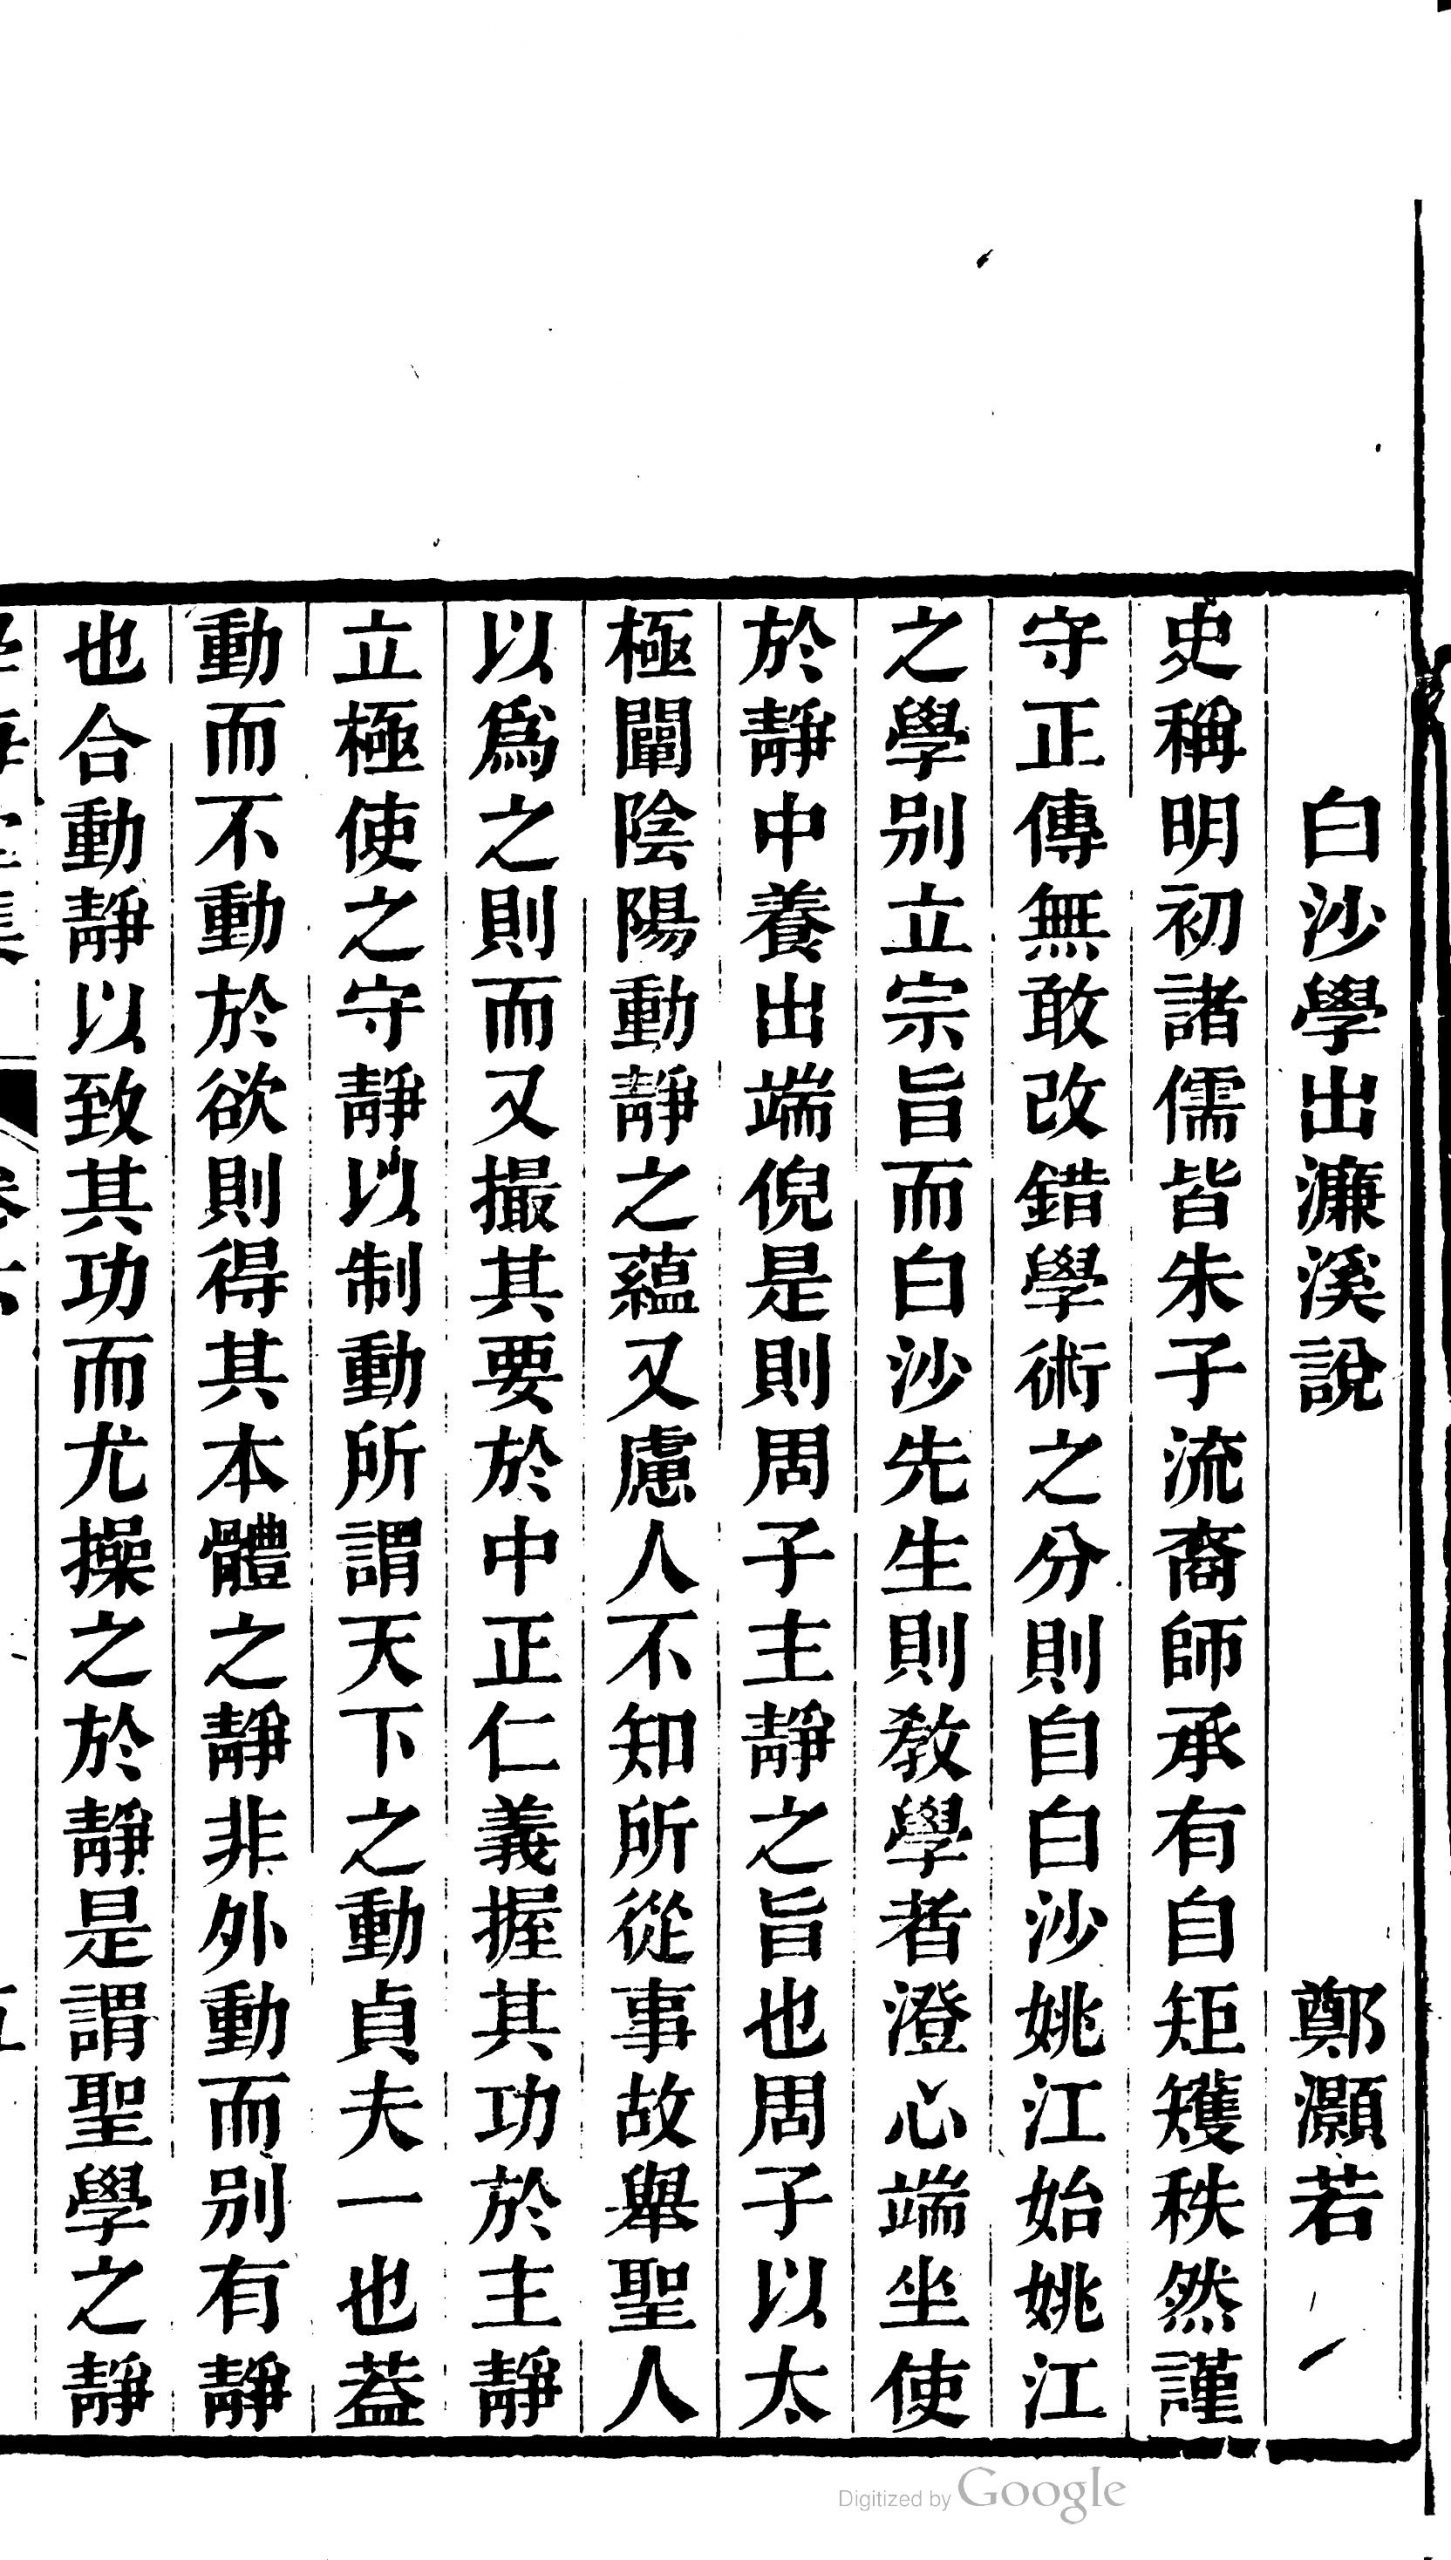 白沙學出濂溪說 鄭灝若
史稱明初諸儒皆朱子流裔師承有自矩矱秩然謹
守正傳無敢改錯學術之分則自白沙姚江始姚江
之學別立宗旨而白沙先生則教學者澄心端坐使
於靜中養出端倪是則周子主靜之旨也周子以太
極闡陰陽動靜之蘊又慮人不知所從事故舉聖人
以爲之則而又撮其要於中正仁義握其功於主靜
立極使之守靜以制動所謂天下之動貞夫一也葢
動而不動於欲則得其本體之靜非外動而別有靜
也合動靜以致其功而尤操之於靜是謂聖學之靜
Digitized by Google